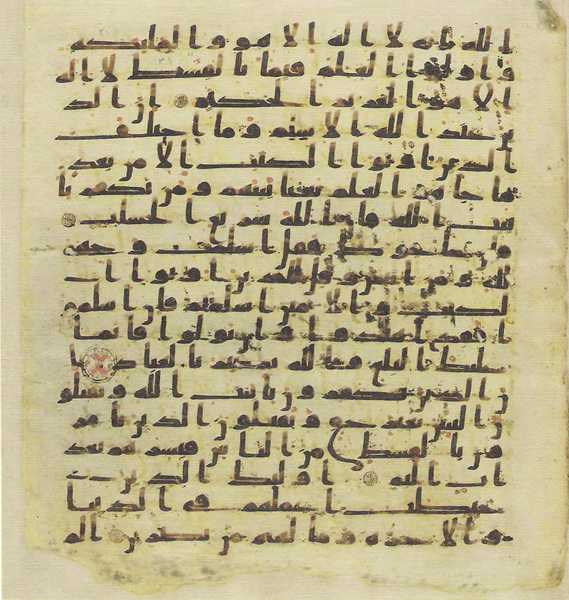 الله انه لا اله الا هو والملئكه
واولوا العلم قيما بالقسط لا اله
الا هو العزيز الحكيم ان الد
ين عند الله الاسلم وما اختلف
الذين اوتوا الكتب الا من بعد
ما جاهم العلم بغيا بينهم ومن يكفر با
يت الله فان الله سريع الحساب
فان حاجوك فقل اسلمت وجهي
لله ومن اتبعن وقل للذين اوتوا ا
لكتب والامين ااسلمتم فان اسلموا
فقد اهتدوا وان تولوا فانما
عليك البلغ والله بصير بالعباد ا
ن الذين يكفرون بايت الله ويقتلو
ن النبين بغير حق ويقتلون الذين يامر
ون بالقسط من الناس فبشرهم بعذ
اب اليم اوليك الذين
حبطت اعملهم في الدنيا
والاخره وما لهم من نصرين الم